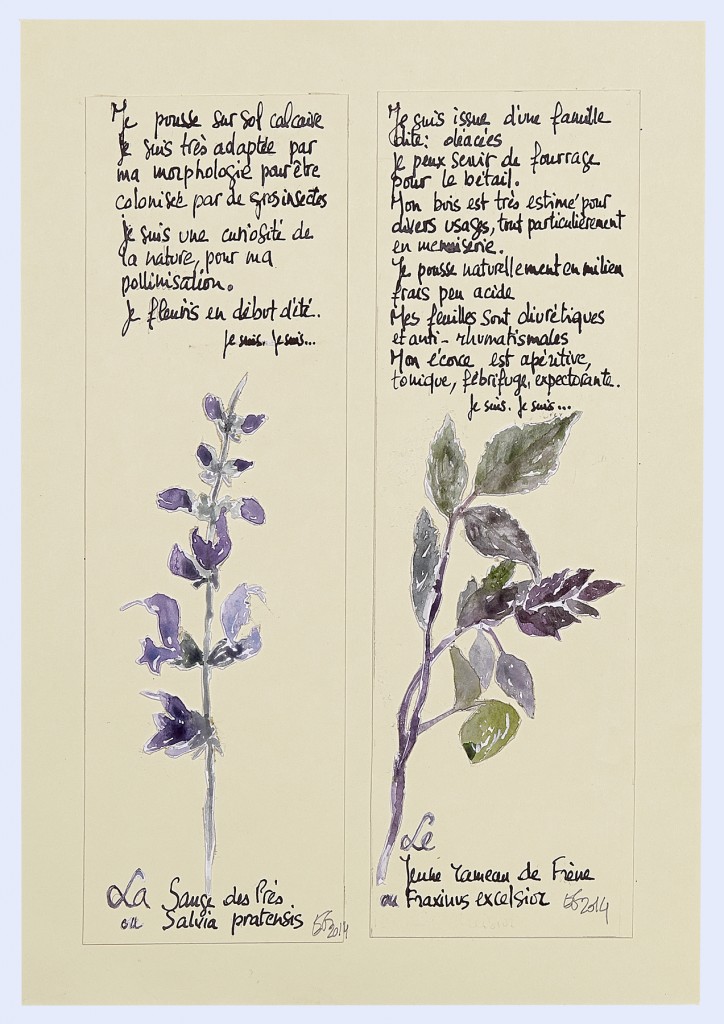 Je pousse sur sol calcaire
Je suis très adaptée par
ma morphologie pour être
colonisée par de gros insectes
Je suis une curiosité de
la nature, pour ma
pollinisation.
Je fleuris en début d'été.
Je suis. Je suis...
La Sauge des Prés
ou Salvia pratensis
2014
Je suis issue d'une famille
dite: oléacées
Je peux servir de fourrage
pour le bétail.
Mon bois est très estimé pour
divers usages, tout particulièrement
en menuiserie.
Je pousse naturellement en milieu
frais peu acide
Mes feuilles sont diurétiques
et anti-rhumatismales
Mon écorce est apéritive,
tonique, fébrifuge, expectorante.
Je suis. Je suis...
Le
Jeune rameau de Frêne
ou Fraxinus excelsior
2014